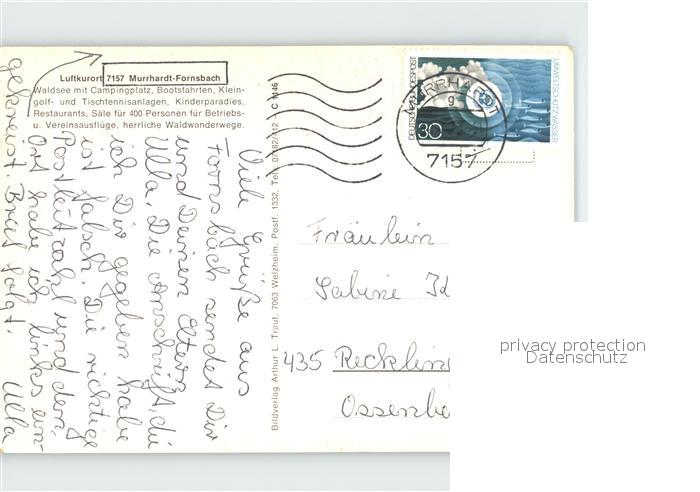 Luftkurort 7157 Murrhardt-Fornsbach
Waldsee mit Campingplatz, Bootsfahrten, Klein-
golf- und Tischtennisanlagen, Kinderparadies,
Restaurants, Säle für 400 Personen für Betriebs-
u. Vereinsausflüge, herrliche Waldwanderwege.
Viele Grüße aus
Fornsbach sendet Dir
und Deinen Eltern
Ulla. Die Anschrift, die
ich Dir gegeben habe
ist falsch. Die richtige
Postleitzahl und den
Ort habe ich links ein-
gekreist. Brief folgt. Ulla
Bildverlag Arthur L. Traut, 7063 Welzheim, Postf. 1332, Tel. 07182/412 - C 1146
DEUTSCHE BUNDESPOST
30
UMWELTSCHUTZ: WASSER
MURRHARDT
g
7157
Fräulein
Sabine Id
435 Recklin
Ossenbe
privacy protection
Datenschutz